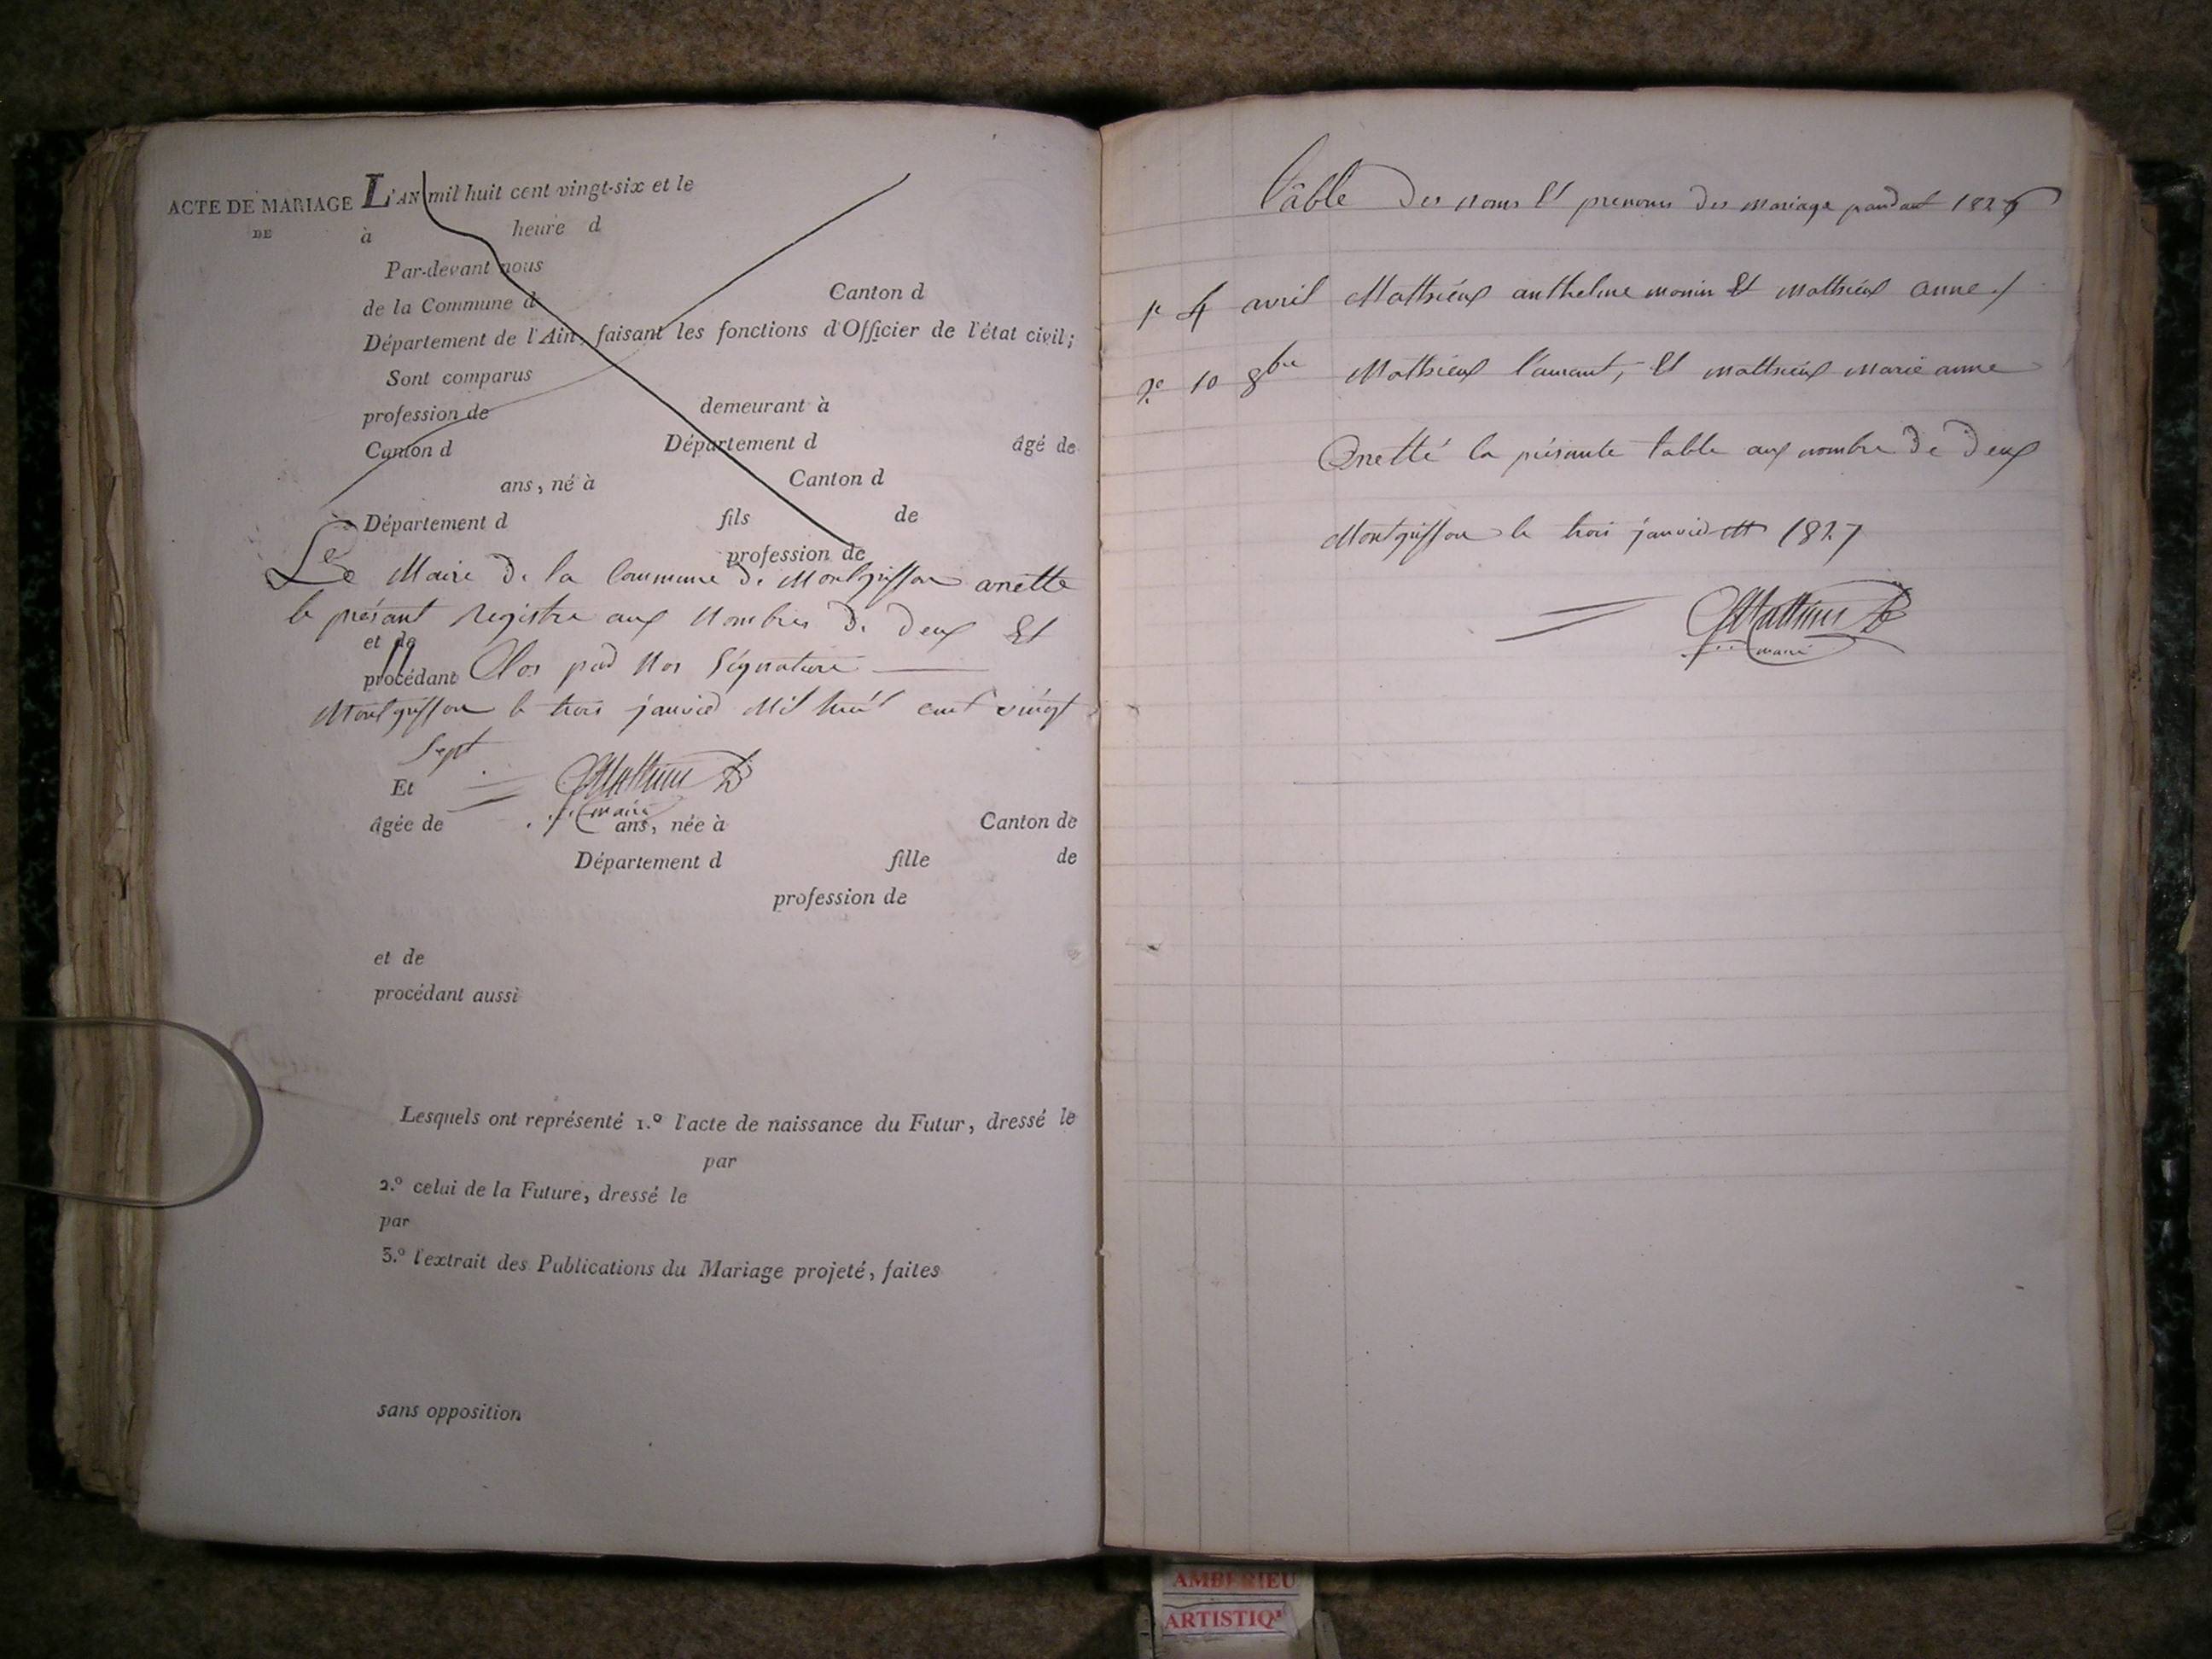 ACTE DE MARIAGE L'AN mil huit cent vingt-six et le
DE à heure d
Par-devant nous
de la Commune d Canton d
Département de l'Ain, faisant les fonctions d'Officier de l'état civil;
Sont comparus
profession de demeurant à
Canton d Département d âgé de
ans, né à Canton d
Département d fils de
profession de
Le Maire de la Commune de Montgriffon arrette
le présant Registre aux Nombres de deux Et
et de
procédant Clos par Nos Signature
Montgriffon le trois janvier Mil huit cent vingt
Sept
Et Mathieu
maire
âgée de ans, née à Canton de
Département d fille de
profession de
et de
procédant aussi
Lesquels ont représenté 1.º l'acte de naissance du Futur, dressé le
par
2.º celui de la Future, dressé le
par
3.º l'extrait des Publications du Mariage projeté, faites
sans opposition
Table des noms Et prenoms des mariage pandant 1826
1e 4 avril Mathieux anthelme monin Et mathieux anne
2e 10 8bre Mathieux laurant, Et mathieux marie anne
Arretté la présente table aux nombre de deux
Montgriffon le trois janvier 1827
Mathieu
maire
AMBERIEU
ARTISTIQ